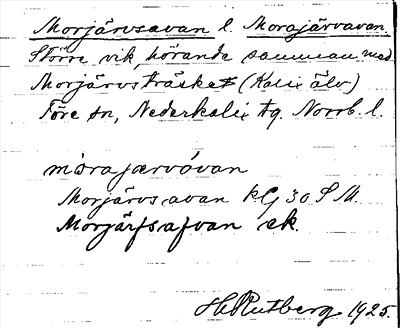 Morjärvsavan l. Morajärvavan
Större vik, hörande samman med
Morjärvsträsket (Kalix älv)
Töre sn, Nederkalix tg. Norrb. l.
mòrajærvávan
Morjärvs avan kG 30 S M.
Morjärfsafvan ek.
H. Rutberg 1925.